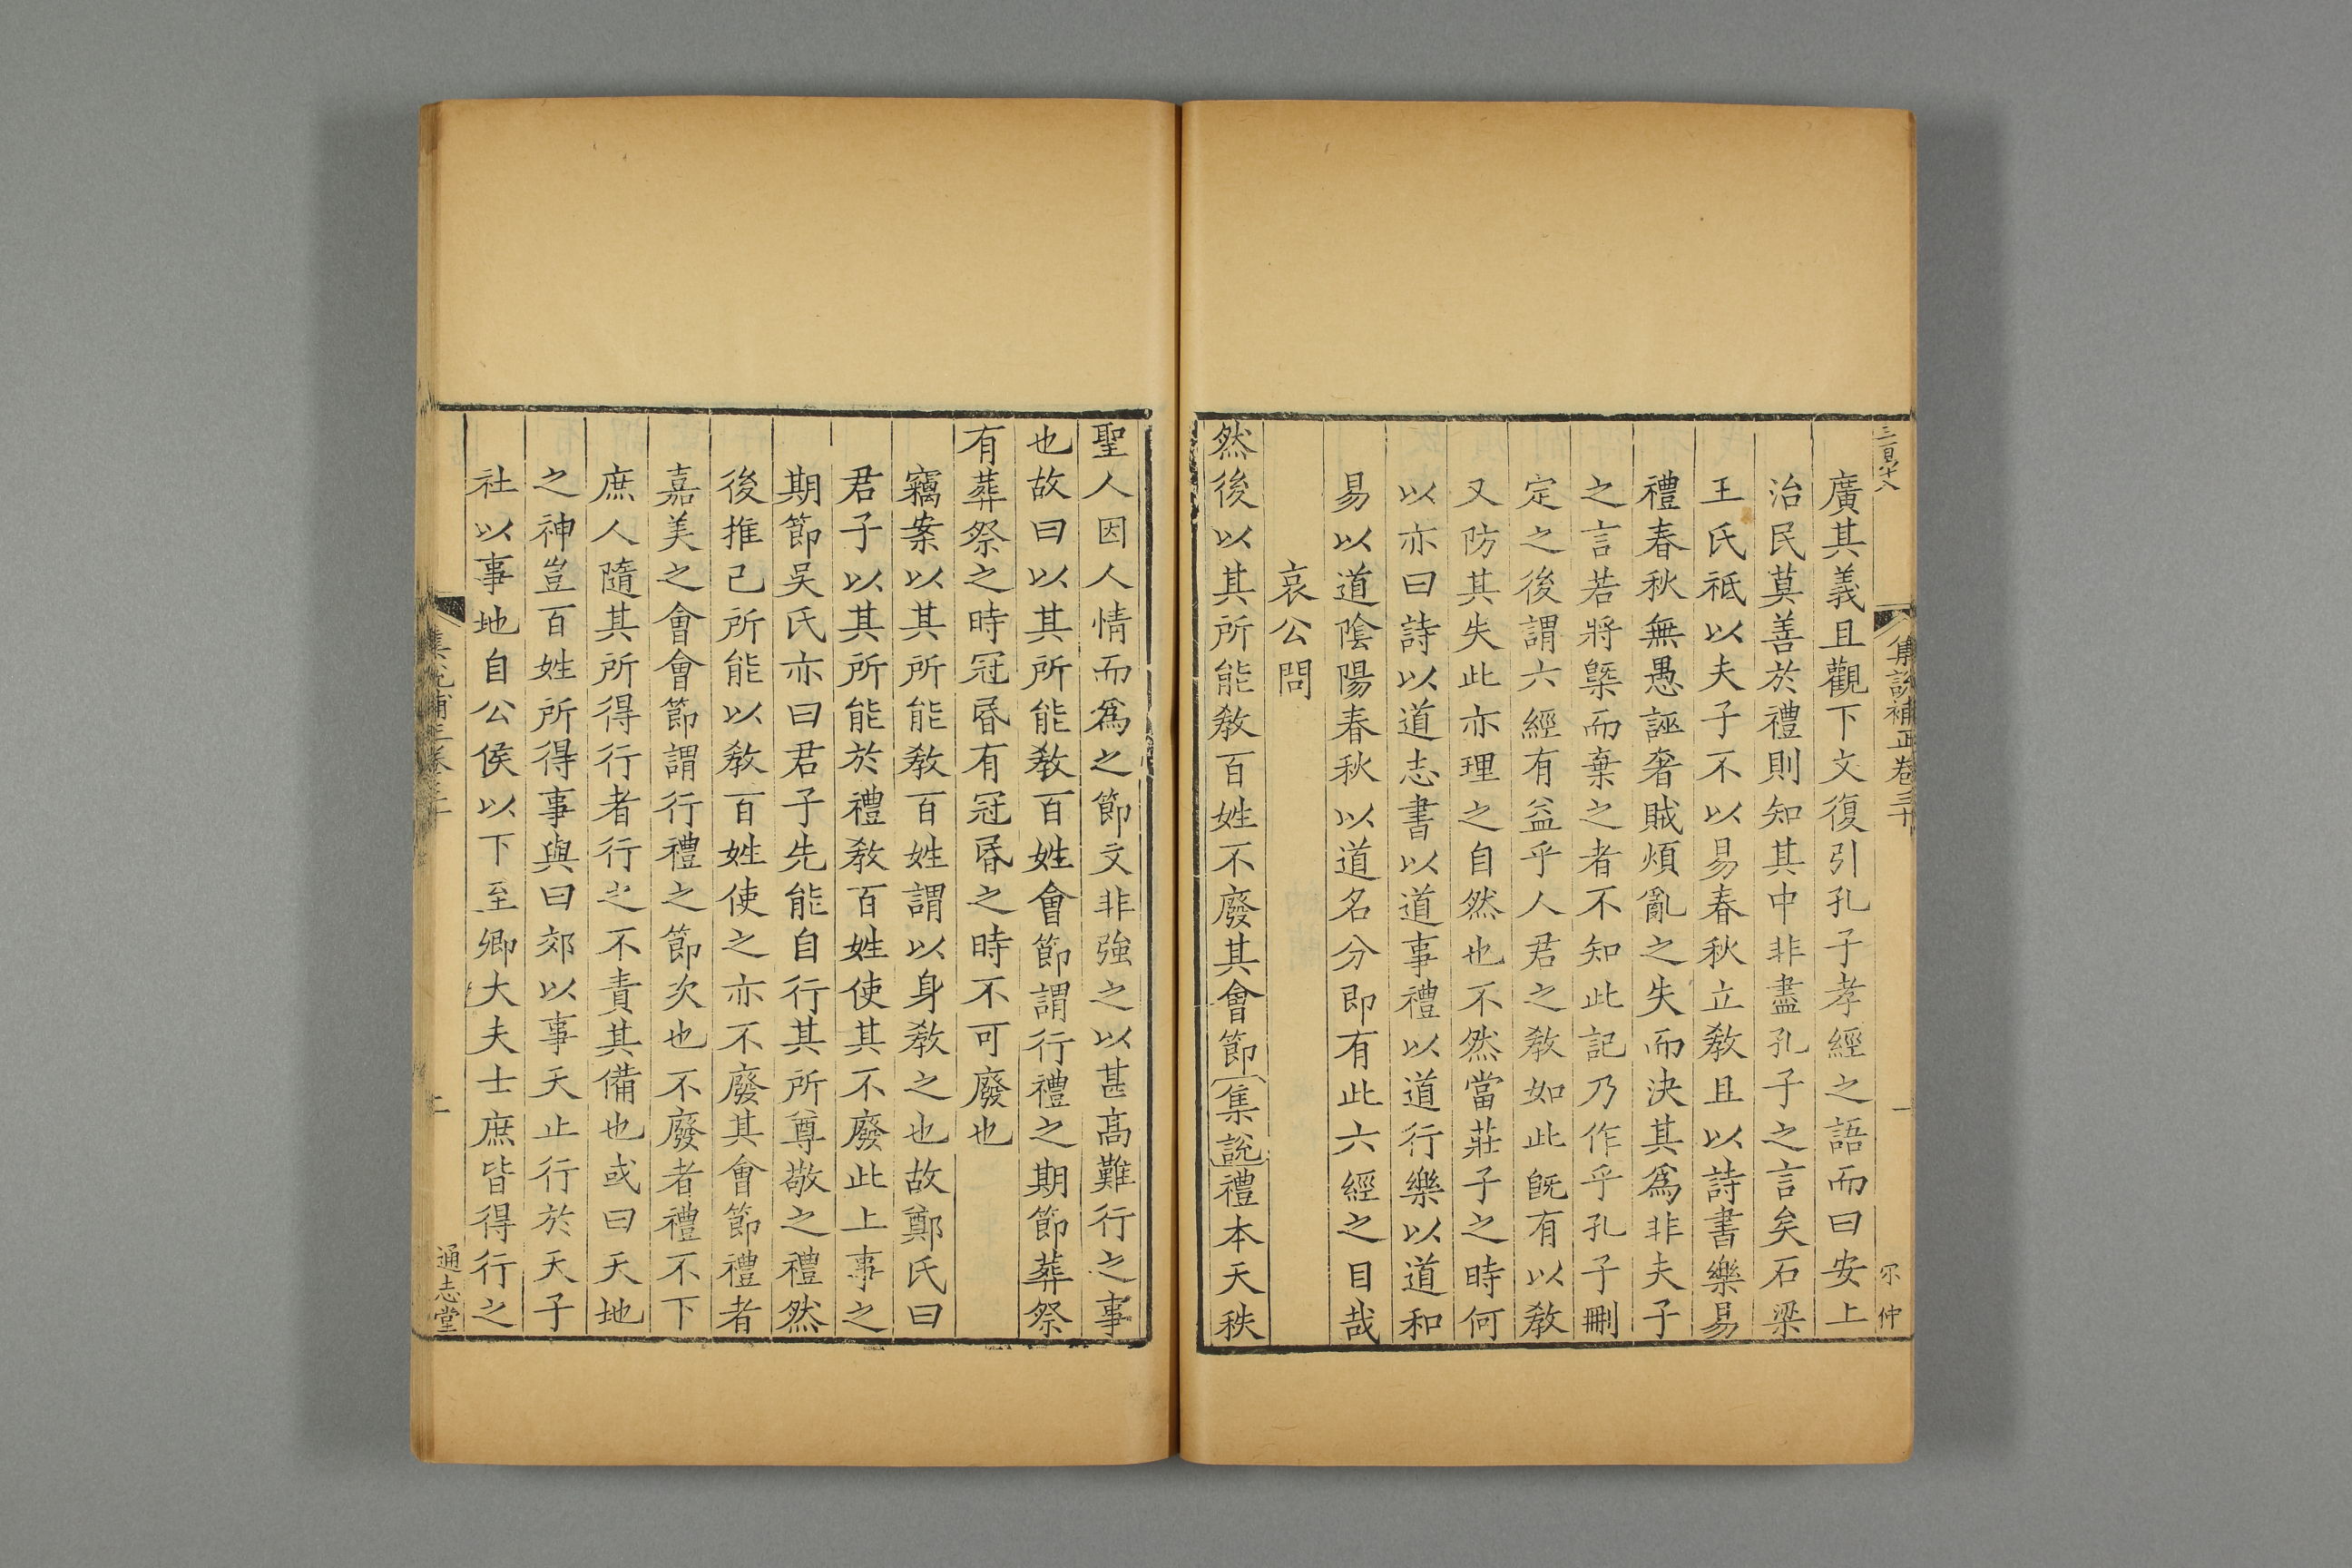 集說補正卷三十
一
仲
廣其義且觀下文復引孔子孝經之語而曰安上
治民莫善於禮則知其中非盡孔子之言矣石梁
王氏祗以夫子不以易春秋立教且以詩書樂易
禮春秋無愚誣奢賊煩亂之失而決其爲非夫子
之言若將槩而棄之者不知此記乃作乎孔子刪
定之後謂六經有益乎人君之教如此旣有以教
又防其失此亦理之自然也不然當莊子之時何
以亦曰詩以道志書以道事禮以道行樂以道和
易以道陰陽春秋以道名分即有此六經之目哉
哀公問
然後以其所能教百姓不廢其會節集說禮本天秩
聖人因人情而爲之節文非強之以甚高難行之事
也故曰以其所能教百姓會節謂行禮之期節葬祭
有葬祭之時冠昏有冠昏之時不可廢也
竊案以其所能教百姓謂以身教之也故鄭氏曰
君子以其所能於禮教百姓使其不廢此上事之
期節吳氏亦曰君子先能自行其所尊敬之禮然
後推己所能以教百姓使之亦不廢其會節禮者
嘉美之會會節謂行禮之節次也不廢者禮不下
庶人隨其所得行者行之不責其備也或曰天地
之神豈百姓所得事與曰郊以事天止行於天子
社以事地自公侯以下至卿大夫士庶皆得行之
通志堂